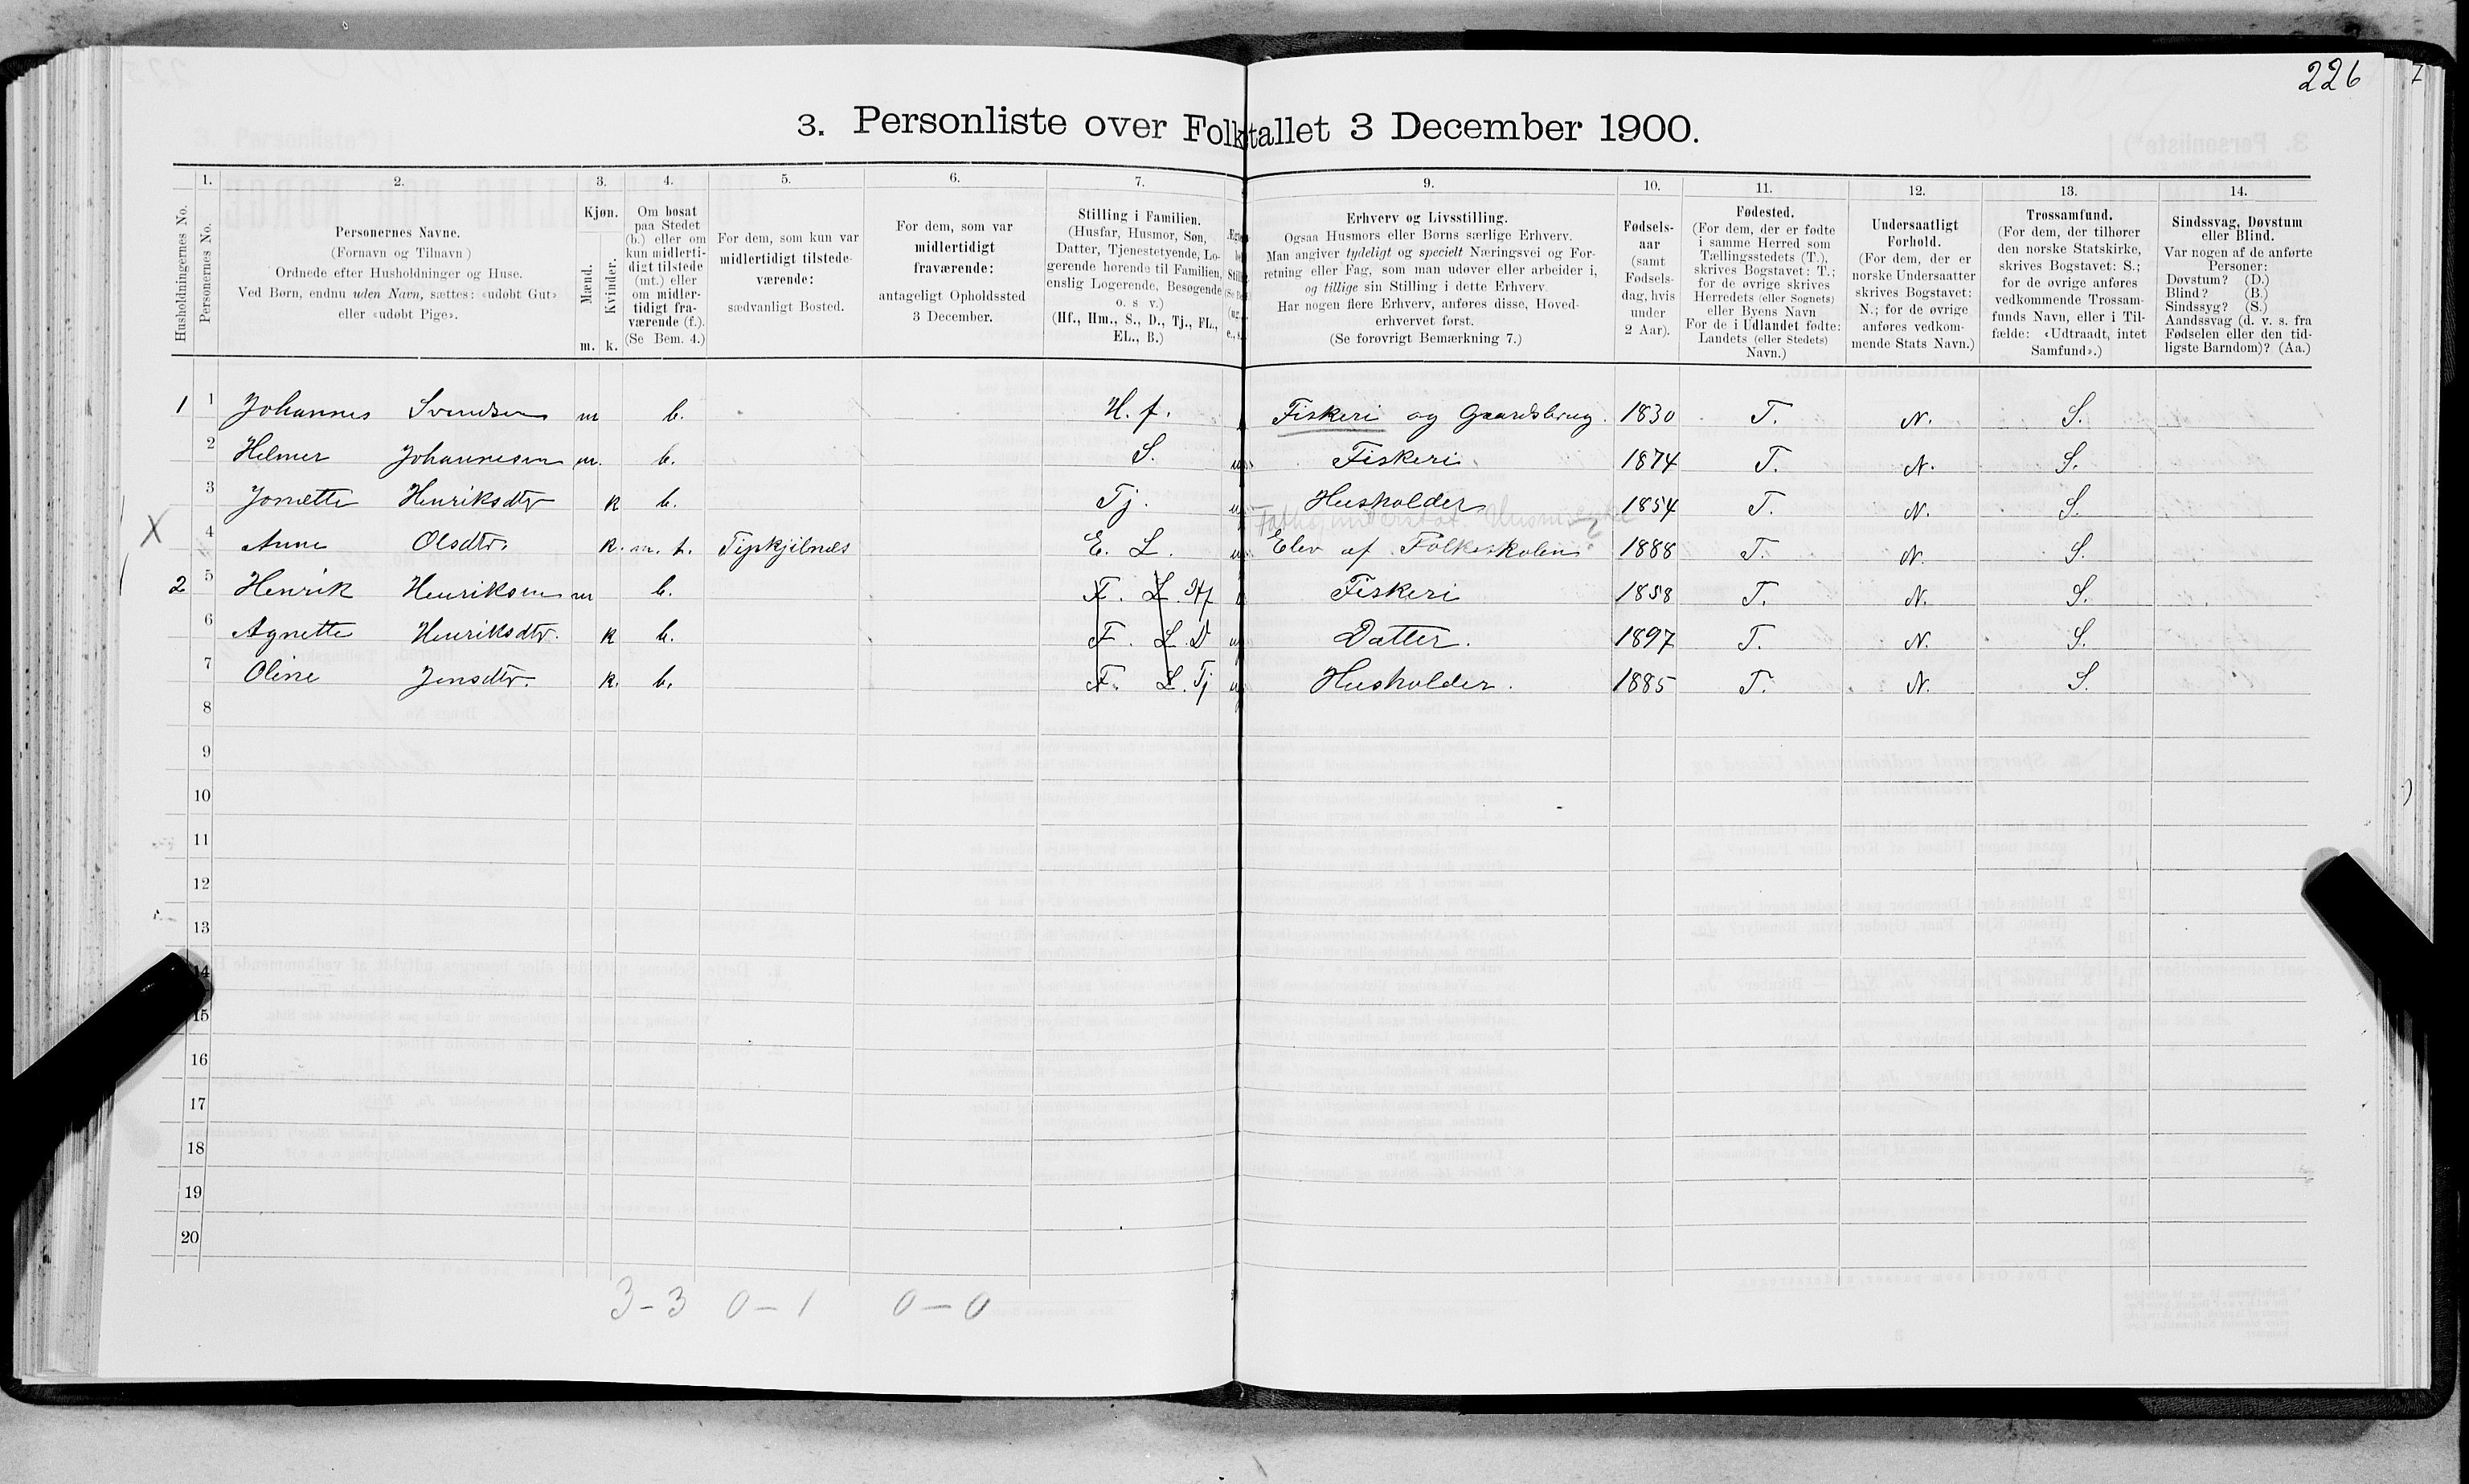 226
7
3. Personliste over Folketallet 3 December 1900.
1. 2. 3. 4. 5. 6. 7. 9. 10. 11. 12. 13. 14.
Husholdningernes No.
Personernes No.
Personernes Navne.
(Fornavn og Tilnavn)
Ordnede efter Husholdninger og Huse.
Ved Børn, endnu uden Navn, sættes: «udøbt Gut»
eller «udøbt Pige».
Kjøn.
Mænd.
Kvinder.
m. k.
Om bosat
paa Stedet
(b.) eller om
kun midlerti-
digt tilstede
(mt.) eller
om midler-
tidigt fra-
værende (f.).
(Se Bem. 4.)
For dem, som kun var
midlertidigt tilstede-
værende:
sædvanligt Bosted.
For dem, som var
midlertidigt
fraværende:
antageligt Opholdssted
3 December.
Stilling i Familien.
(Husfar, Husmor, Søn,
Datter, Tjenestetyende, Lo-
gerende hørende til Familien,
enslig Logerende, Besøgende
o. s v.)
(Hf., Hm., S., D., Tj., FL.,
EL., B.)
Erhverv og Livsstilling.
Ogsaa Husmors eller Børns særlige Erhverv.
Man angiver tydeligt og specielt Næringsvei og For-
retning eller Fag, som man udøver eller arbeider i,
og tillige sin Stilling i dette Erhverv.
Har nogen flere Erhverv, anføres disse, Hoved-
erhvervet først.
(Se forøvrigt Bemærkning 7.)
Fødsels-
aar
(samt
Fødsels-
dag, hvis
under
2 Aar).
Fødested.
(For dem, der er fødte
i samme Herred som
Tællingsstedets (T.),
skrives Bogstavet: T.;
for de øvrige skrives
Herredets (eller Sognets)
eller Byens Navn
For de i Udlandet fødte:
Landets (eller Stedets)
Navn.)
Undersaatligt
Forhold.
(For dem, der er
norske Undersaatter
skrives Bogstavet:
N.; for de øvrige
anføres vedkom-
mende Stats Navn.)
Trossamfund.
(For dem, der tilhører
den norske Statskirke,
skrives Bogstavet: S.;
for de øvrige anføres
vedkommende Trossam-
funds Navn, eller i Til-
fælde: «Udtraadt, intet
Samfund».)
Sindssvag, Døvstum
eller Blind.
Var nogen af de anførte
Personer:
Døvstum? (D.)
Blind? (B.)
Sindssyg? (S.)
Aandssvag (d. v. s. fra
Fødselen eller den tid-
ligste Barndom)? (Aa.)
1 1 Johannes Svendsen m b. H. f. Fiskeri og Gaardsbrug. 1830 T. N. S.
2 Helmer Johannesen m. b. S. Fiskeri 1874 T. N. S.
3 Jonette Henriksdtr k b. Tj. Husholder 1854 T. N. S.
X 4 Anne Olsdtr. k. m. t. E. L. Elev af Folkeskolen 1888 T. N. S.
2 5 Henrik Henriksen m b. F. L. Hf Fiskeri 1858 T. N. S.
6 Agnette Henriksdtr. k b. F. L. D Datter. 1897 T. N. S.
7 Oline Jensdtr. k. b. F. L. Tj Husholder. 1885 T. N. S.
8
9
10
11
12
13
14
15
16
17
18
19
20
3-3 0-1 0-0